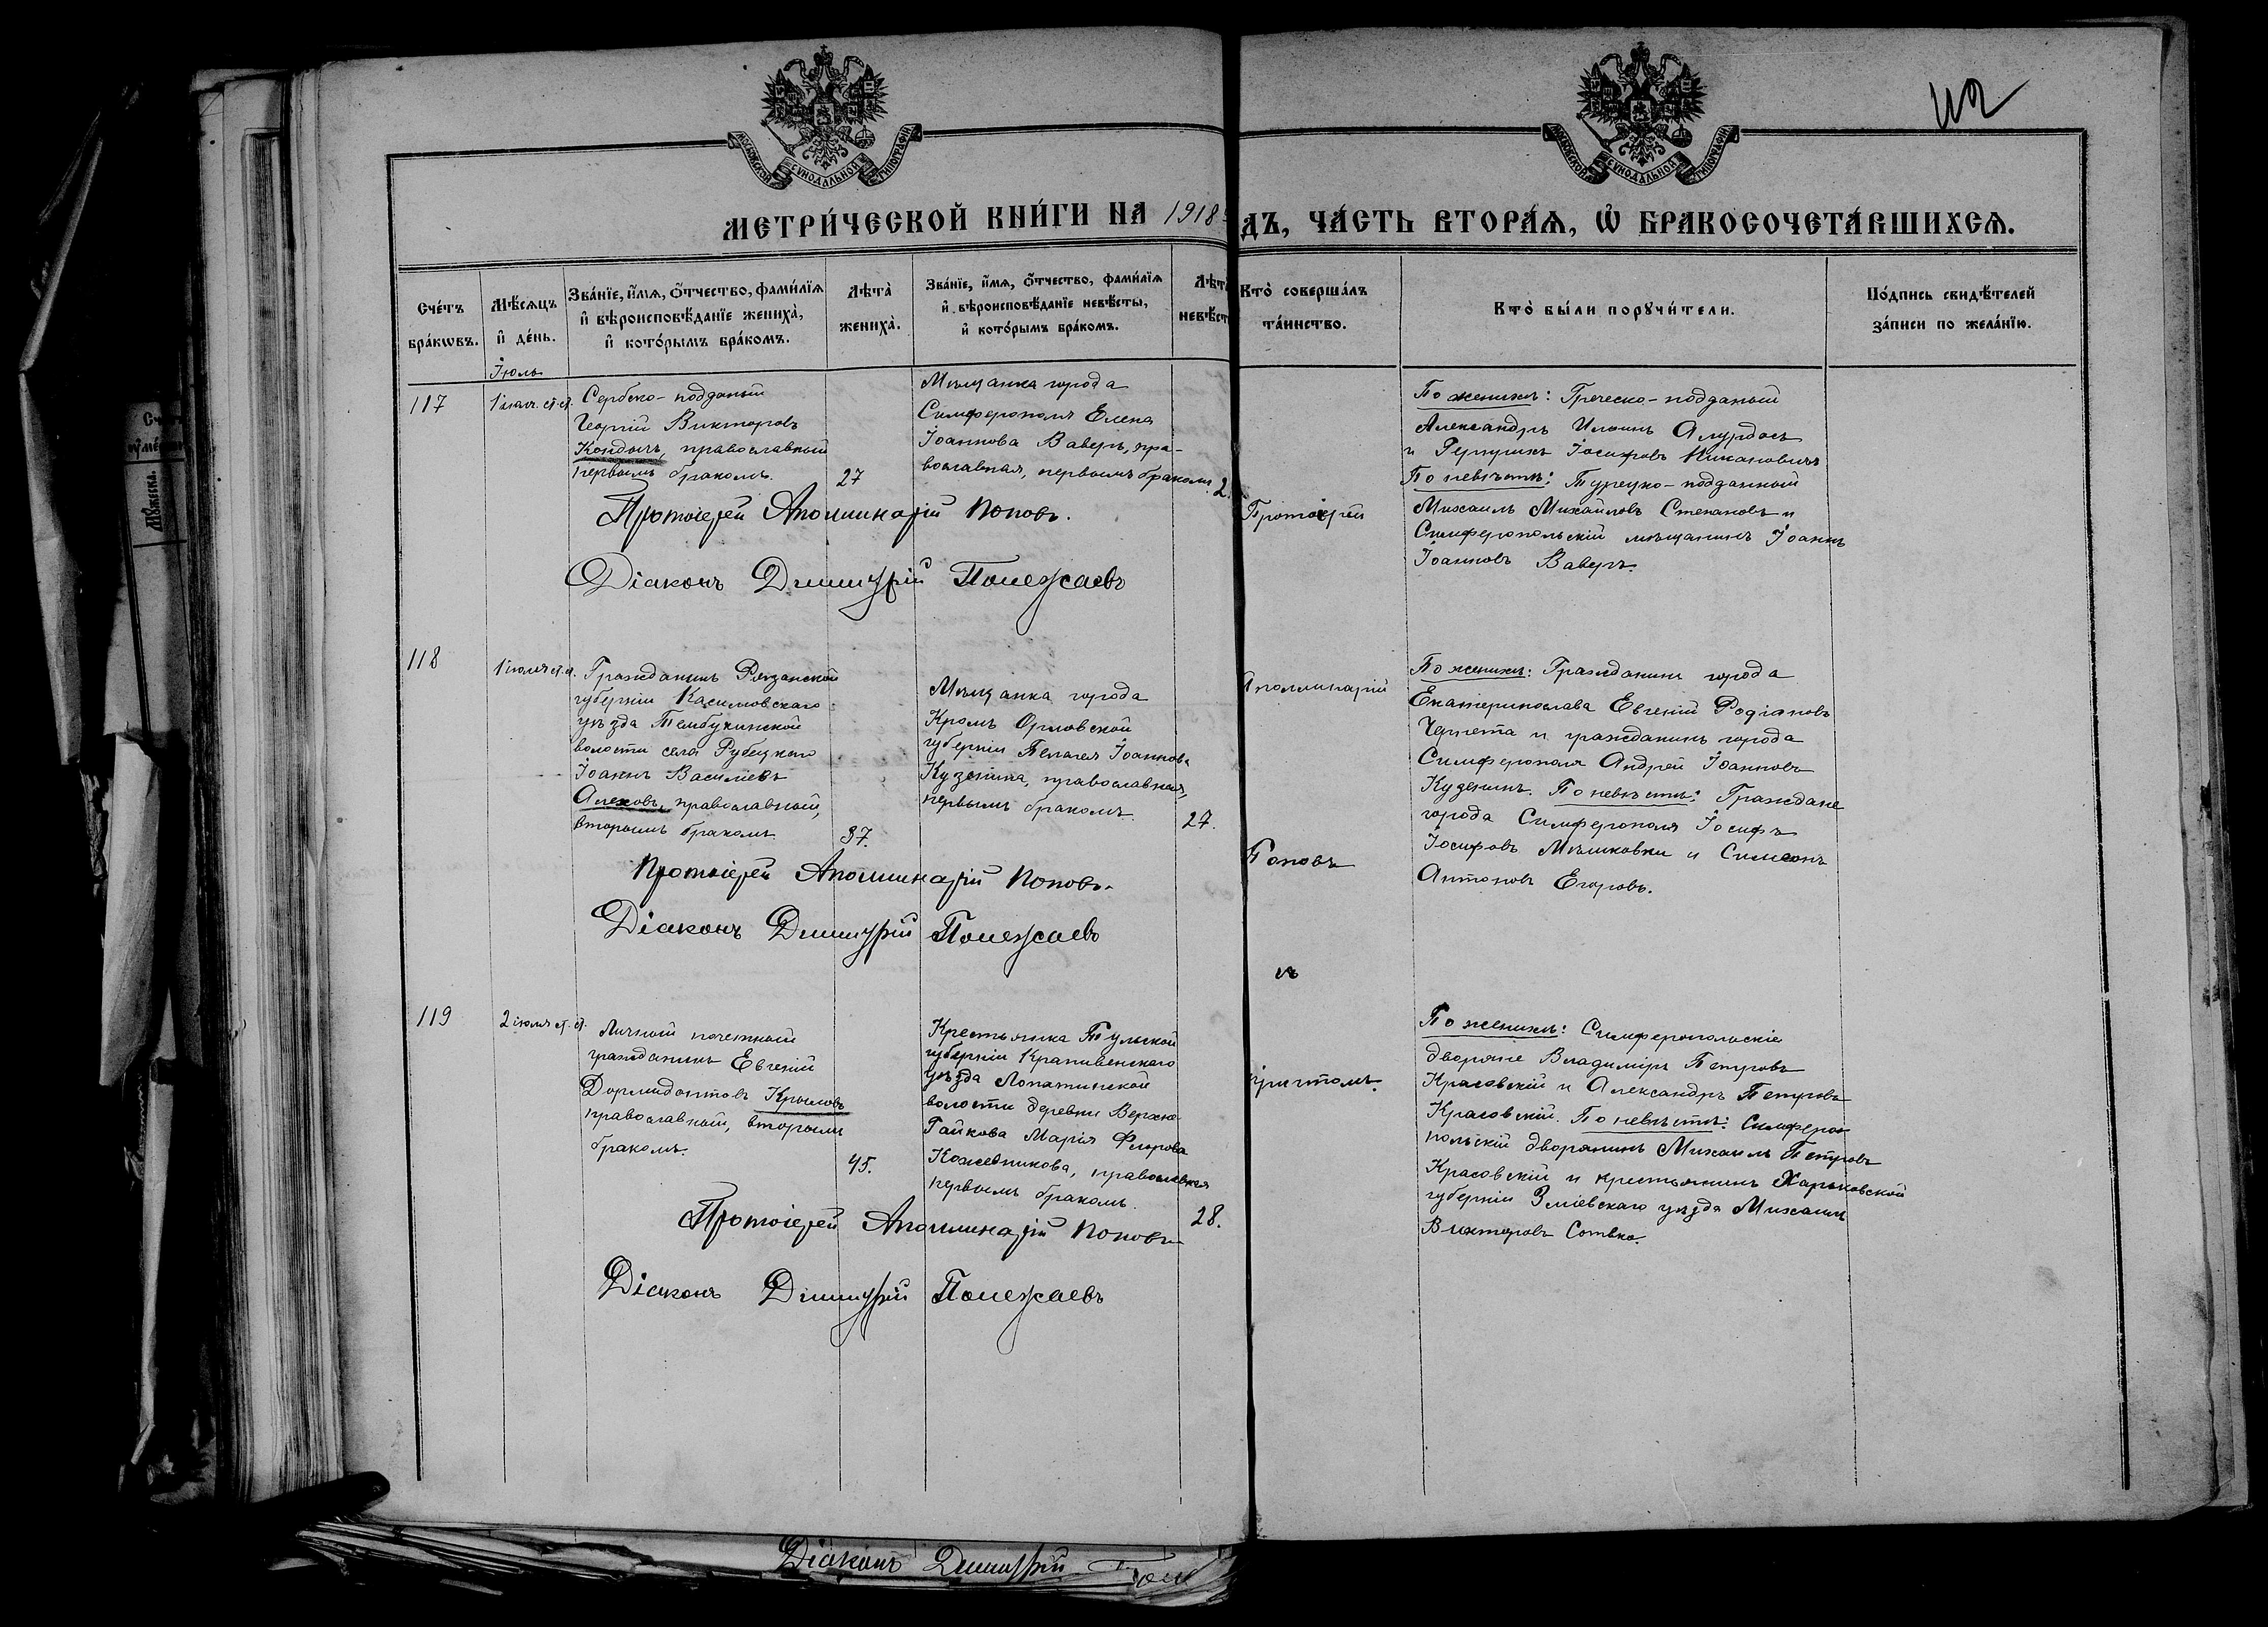 МОСКОВСКОЙ СѴНОДАЛЬНОЙ ТИПОГРАФІИ
МОСКОВСКОЙ СѴНОДАЛЬНОЙ ТИПОГРАФІИ
112
МЕТРИ́ЧЕСКОЙ КНИ́ГИ НА 1918
ДЪ, ЧА́СТЬ ВТОРА́Ѧ, Ѡ҆ БРАКОСОЧЕТА́ВШИХСѦ.
Сче́тъ бра́кѡвъ.
Мѣ́сѧцъ и҆ де́нь.
Зва́нїе, и҆́мѧ, ѻ҆́тчество, фами́лїѧ и҆ вѣроисповѣ́данїе жениха̀, и҆ кото́рымъ бра́комъ.
Лѣта̀ жениха̀.
Зва́нїе, и҆́мѧ, ѻ҆́тчество, фами́лїѧ и҆ вѣроисповѣ́данїе невѣ́сты, и҆ кото́рымъ бра́комъ.
Лѣт невѣ́ст
Кто̀ соверша́лъ та́инство.
Кто̀ бы́ли порꙋчи́тели.
По́дпись свидѣ́телей за́писи по жела́нїю.
Іюль
117
1 іюля ст. ст.
Сербско-подданый
Георгій Викторовъ
Кондичъ, православный
первымъ бракомъ.
27
Мѣщанка города
Симферополя Елена
Іоаннова Ваверъ, пра-
вославная, первымъ бракомъ.
2
Протоіерей
По женихѣ: Греческо-подданый
Александръ Ильинъ
и Іосифовъ
По невѣстѣ: Турецко-подданный
Михаилъ Михайловъ Степановъ и
Симферопольскій мѣщанинъ Іоаннъ
Іоанновъ Ваверъ.
Протоіерей Аполлинарій Поповъ.
Діаконъ Димитрій Полежаевъ
118
1 іюля ст. ст.
Гражданинъ Рязанской
губерніи Касимовскаго
уѣзда Тембукинской
волости села Рубецкаго
Іоаннъ Василіевъ
Алеховъ, православный,
вторымъ бракомъ
37.
Мѣщанка города
Кромъ Орловской
губерніи Пелагея Іоаннова
Куденина, православная,
первымъ бракомъ.
27.
Аполлинарій
Поповъ
По женихѣ: Гражданинъ города
Екатеринослава Евгеній Родіановъ
Чернета и гражданинъ города
Симферополя Андрей Іоанновъ
Куденинъ. По невѣстѣ: Граждане
города Симферополя Іосифъ
Іосифовъ Мѣшковки и Симеонъ
Антоновъ Егоровъ.
Протоіерей Аполлинарій Поповъ.
Діаконъ Димитрій Полежаевъ
съ
119
2 іюля ст. ст.
Личный почетный
гражданинъ Евгеній
Дормидонтовъ Крыловъ
православный, вторымъ
бракомъ.
45.
Крестьянка Тульской
губерніи Крапивенскаго
уѣзда Лопатинской
волости деревни Верхне
Гайкова Марія Флорова
Кожевникова, православная
первымъ бракомъ.
28.
причтомъ.
По женихѣ: Симферопольскіе
дворяне Владиміръ Петровъ
Красовскій и Александръ Петровъ
Красовскій. По невѣстѣ: Симферо-
польскій дворянинъ Михаилъ Петровъ
Красовскій и крестьянинъ Харьковской
губерніи Зміевскаго уѣзда Михаилъ
Викторовъ Сотвко.
Протоіерей Аполлинарій Поповъ
Діаконъ Димитрій Полежаевъ
Діаконъ Димитрій Пол